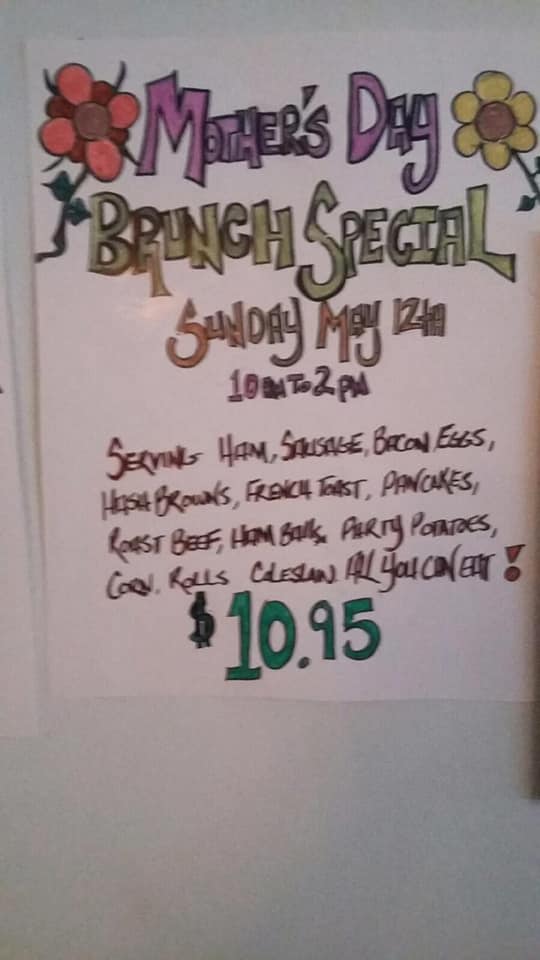 MOTHER'S DAY
BRUNCH SPECIAL
SUNDAY MAY 12TH
10 AM TO 2 PM
SERVING HAM, SAUSAGE, BACON, EGGS,
HASH BROWNS, FRENCH TOAST, PANCAKES,
ROAST BEEF, HAM BALLS, PARTY POTATOES,
CORN, ROLLS COLESLAW. ALL YOU CAN EAT!
$10.95